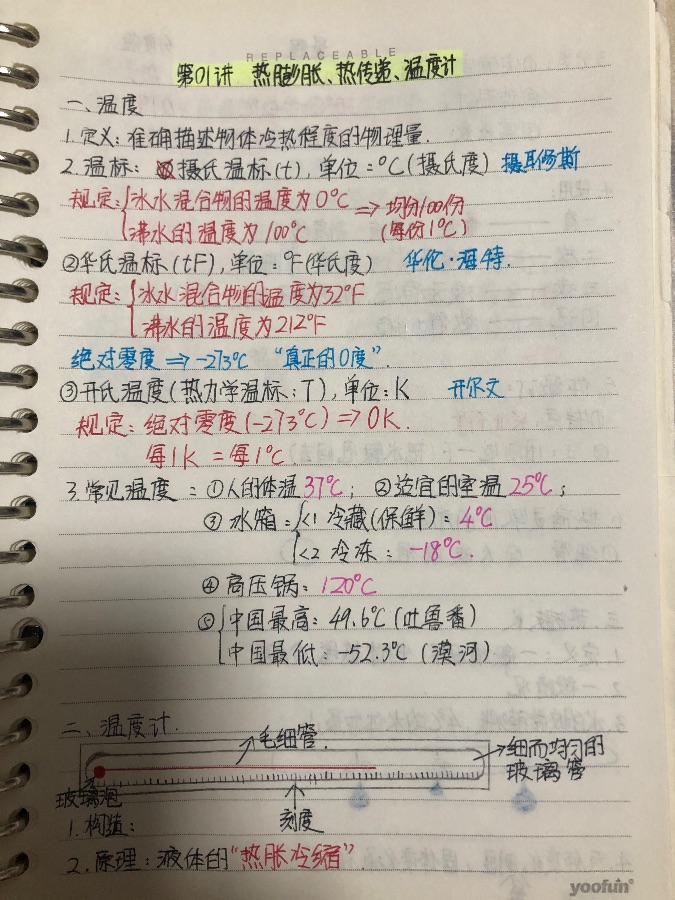 REPLACEABLE
第01讲 热膨胀、热传递、温度计
一、温度
1.定义：准确描述物体冷热程度的物理量.
2.温标： 摄氏温标(t)，单位：°C(摄氏度) 摄耳修斯
规定：{冰水混合物的温度为0°C ⇒ 均分100份
沸水的温度为100°C (每份1°C)
②华氏温标(tF)，单位：°F(华氏度) 华伦·海特.
规定：{冰水混合物的温度为32°F
沸水的温度为212°F
绝对零度 ⇒ -273°C “真正的0度”.
③开氏温度(热力学温标：T)，单位：K 开尔文
规定：绝对零度(-273°C) ⇒ 0K.
每1K = 每1°C.
3.常见温度：①人的体温37°C；②适宜的室温25°C；
③冰箱：{<1 冷藏(保鲜)：4°C
<2 冷冻：-18°C.
④高压锅：120°C
⑤{中国最高：49.6°C(吐鲁番)
中国最低：-52.3°C(漠河)
二、温度计.
毛细管.
细而均匀的
玻璃管
玻璃泡
刻度
1.构造：
2.原理：液体的“热胀冷缩”.
yoofun